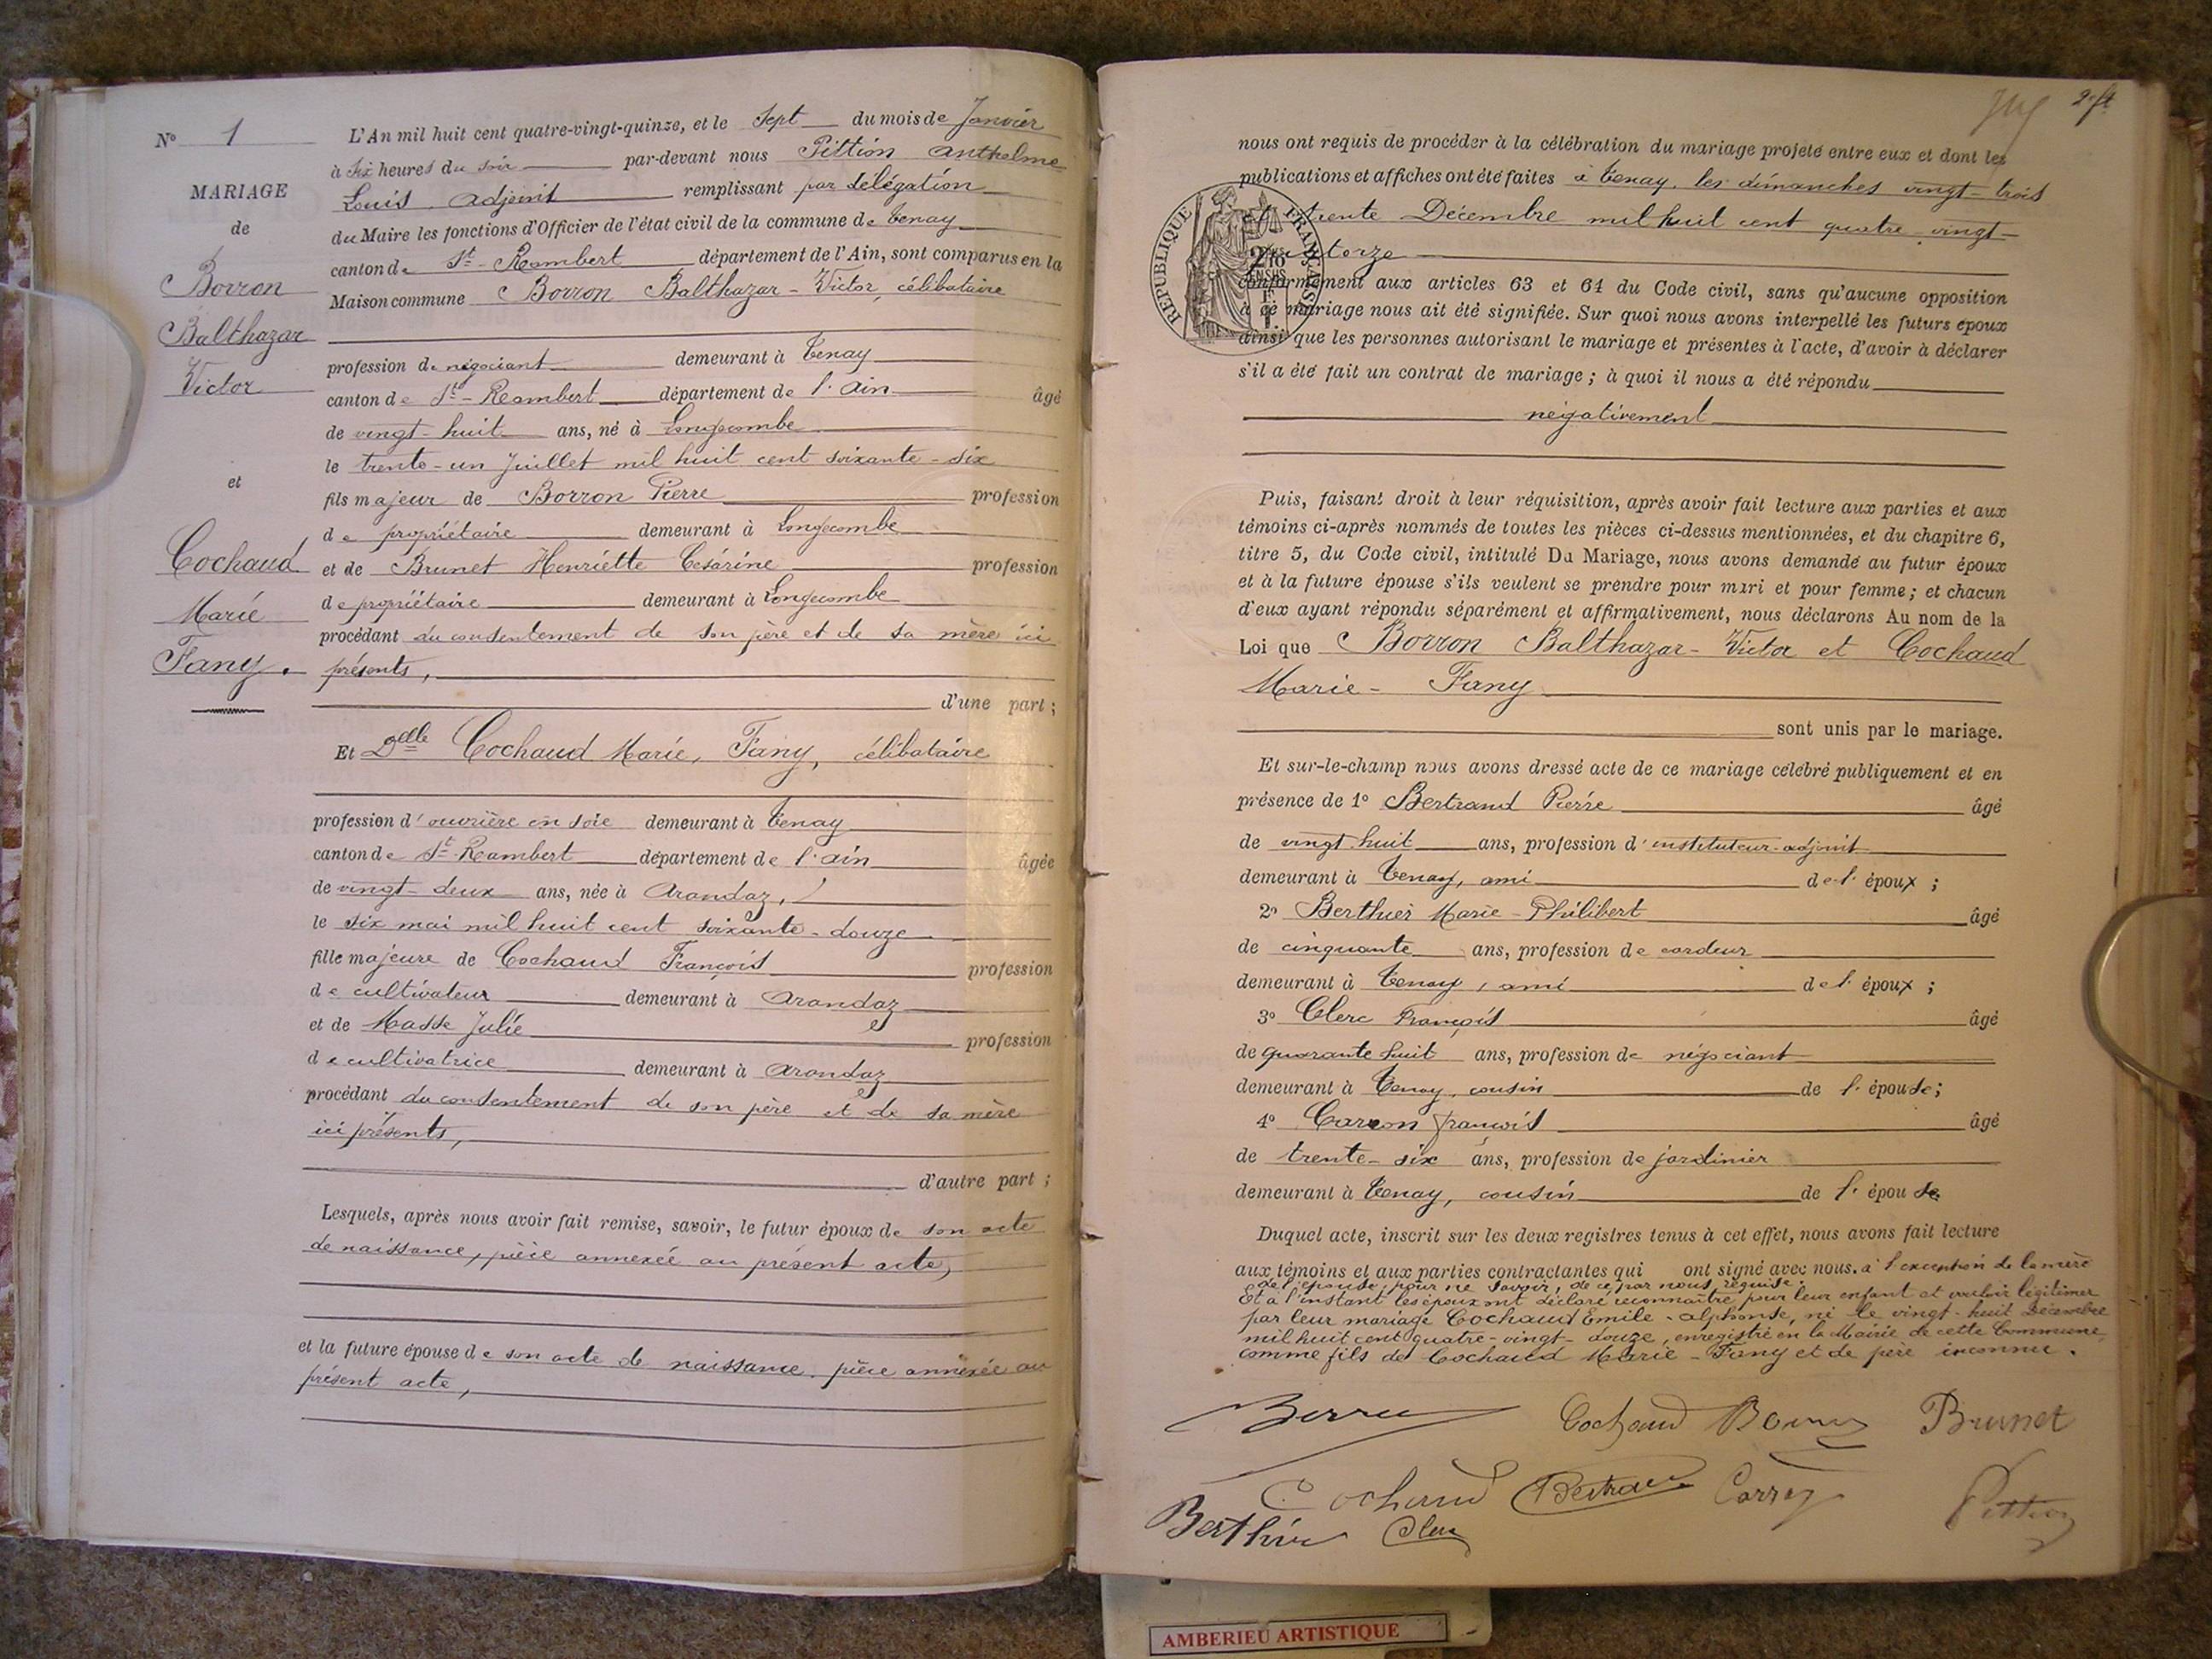 N° 1
MARIAGE
de
Borron
Balthazar
Victor
et
Cochaud
Marie
Fany.
L'An mil huit cent quatre-vingt-quinze, et le Sept du mois de Janvier
à Six heures du soir par-devant nous Pittion Anthelme
Louis, adjoint remplissant par délégation
du Maire les fonctions d'Officier de l'état civil de la commune de Tenay
canton de St-Rambert département de l'Ain, sont comparus en la
Maison commune Borron Balthazar-Victor, célibataire
profession de négociant demeurant à Tenay
canton de St-Rambert département de l'Ain âgé
de vingt-huit ans, né à Longecombe
le trente-un Juillet mil huit cent soixante-six
fils majeur de Borron Pierre profession
de propriétaire demeurant à Longecombe
et de Brunet Henriette Césarine profession
de propriétaire demeurant à Longecombe
procédant du consentement de son père et de sa mère ici
présents,
d'une part;
Et Delle Cochaud Marie, Fany, célibataire
profession d'ouvrière en soie demeurant à Tenay
canton de St-Rambert département de l'Ain âgée
de vingt-deux ans, née à Arandaz,
le six mai mil huit cent soixante-douze
fille majeure de Cochaud François profession
de cultivateur demeurant à Arandaz
et de Masse Julie profession
de cultivatrice demeurant à Arandaz
procédant du consentement de son père et de sa mère
ici présents,
d'autre part;
Lesquels, après nous avoir fait remise, savoir, le futur époux de son acte
de naissance, pièce annexée au présent acte,
et la future épouse de son acte de naissance, pièce annexée au
présent acte,
nous ont requis de procéder à la célébration du mariage projeté entre eux et dont les
publications et affiches ont été faites à Tenay, les dimanches vingt-trois
et trente Décembre mil huit cent quatre-vingt-
quatorze
RÉPUBLIQUE FRANÇAISE
conformément aux articles 63 et 64 du Code civil, sans qu'aucune opposition
à ce mariage nous ait été signifiée. Sur quoi nous avons interpellé les futurs époux
ainsi que les personnes autorisant le mariage et présentes à l'acte, d'avoir à déclarer
s'il a été fait un contrat de mariage; à quoi il nous a été répondu
négativement
Puis, faisant droit à leur réquisition, après avoir fait lecture aux parties et aux
témoins ci-après nommés de toutes les pièces ci-dessus mentionnées, et du chapitre 6,
titre 5, du Code civil, intitulé Du Mariage, nous avons demandé au futur époux
et à la future épouse s'ils veulent se prendre pour mari et pour femme; et chacun
d'eux ayant répondu séparément et affirmativement, nous déclarons Au nom de la
Loi que Borron Balthazar-Victor et Cochaud
Marie-Fany
sont unis par le mariage.
Et sur-le-champ nous avons dressé acte de ce mariage célébré publiquement et en
présence de 1° Bertrand Pierre âgé
de vingt-huit ans, profession d'instituteur-adjoint
demeurant à Tenay, ami de l'époux;
2° Berthier Marie-Philibert âgé
de cinquante ans, profession de cardeur
demeurant à Tenay, ami de l'époux;
3° Clerc François âgé
de quarante huit ans, profession de négociant
demeurant à Tenay, cousin de l'épouse;
4° François âgé
de trente-six ans, profession de jardinier
demeurant à Tenay, cousin de l'épouse
Duquel acte, inscrit sur les deux registres tenus à cet effet, nous avons fait lecture
aux témoins et aux parties contractantes qui ont signé avec nous. à l'exception de la mère
de l'épouse pour ne savoir, de ce par nous requise.
Et à l'instant les époux ont déclaré reconnaître pour leur enfant et vouloir légitimer
par leur mariage Cochaud Emile-alphonse, né le vingt-huit Décembre
mil huit cent quatre-vingt-douze, enregistré en la Mairie de cette Commune,
comme fils de Cochaud Marie-Fany et de père inconnu.
Cochaud Brunet
Cochaud Bertrand
Berthier Clerc Pittion
AMBERIEU ARTISTIQUE